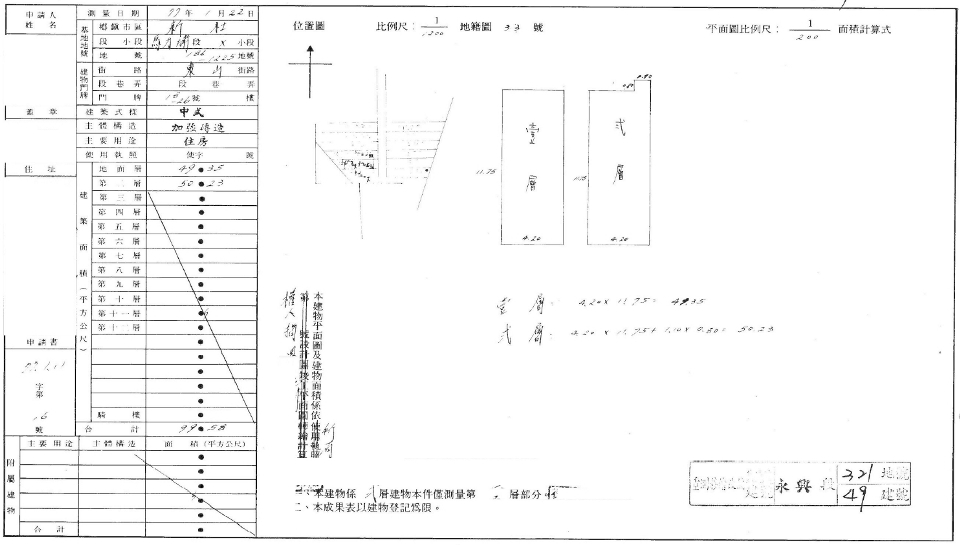 申請人姓名
測量日期 77年1月22日
基地地號
鄉鎮市區 新社
段小段 段 小段
地號 地號
建物門牌
街路 東山 街路
段巷弄 段巷弄
門牌 號 樓
蓋章
建築式樣 中式
主體構造 加強磚造
主要用途 住房
使用執照 使字 號
住址
建築面積(平方公尺)
地面層 49.35
第二層 50.23
第三層
第四層
第五層
第六層
第七層
第八層
第九層
第十層
第十一層
第十二層
申請書
字第
號
騎樓
合計 99.58
附屬建物
主要用途 主體構造 面積(平方公尺)
合計
位置圖 比例尺: 1/1200 地籍圖 33 號
平面圖比例尺: 1/200 面積計算式
0.80
壹層
弍層
11.75
11.75
4.20
4.20
壹層: 4.20×11.75=49.35
弍層: 4.20×11.75+1.10×0.80=50.23
本建物平面圖及建物面積係依使用執照
本建物係弍層建物本件僅測量第 層部分
二、本成果表以建物登記為限。
永興段
321 地號
49 建號